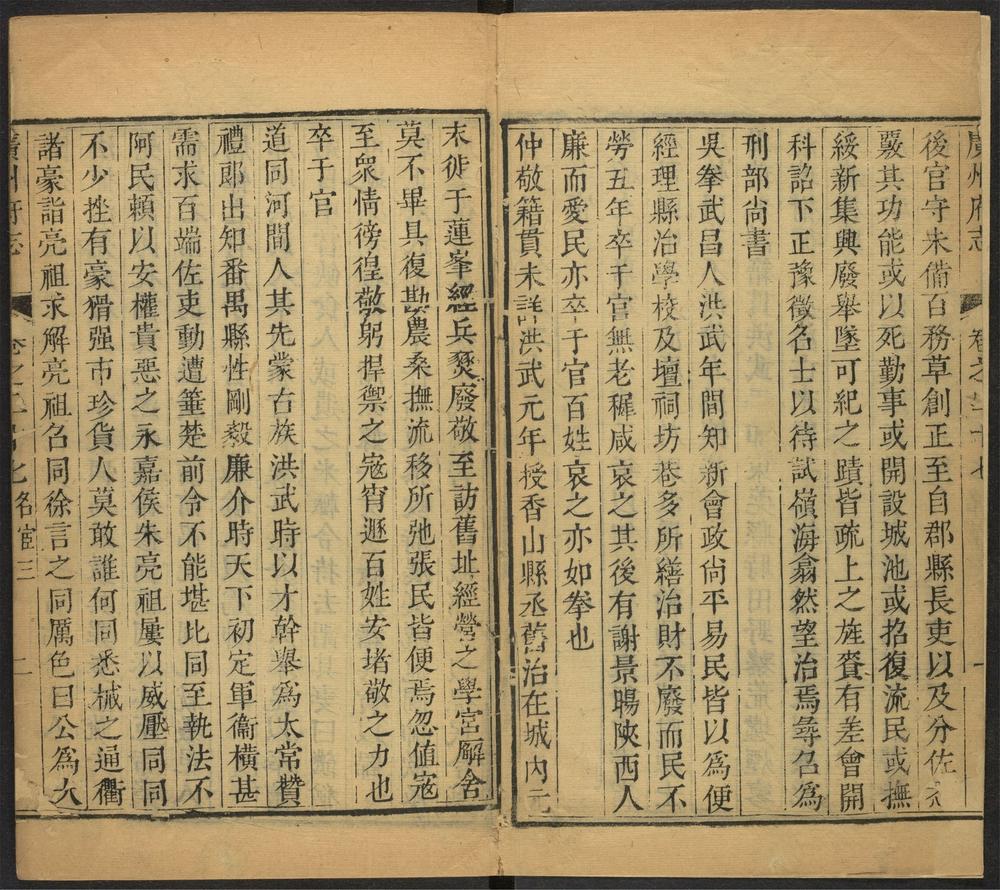 廣州府志 卷之二十七
後官守未備百務草創正至自郡縣長吏以及分佐
覈其功能或以死勤事或開設城池或招復流民或撫
綏新集興廢舉墜可紀之蹟皆疏上之旌賚有差會開
科詔下正豫徵名士以待試嶺海翕然望治焉尋召為
刑部尚書
吳拳武昌人洪武年間知新會政尚平易民皆以為便
經理縣治學校及壇祠坊巷多所繕治財不廢而民不
勞五年卒于官無老穉咸哀之其後有謝景暘陝西人
廉而愛民亦卒于官百姓哀之亦如拳也
仲敬籍貫未詳洪武元年授香山縣丞舊治在城內元
末徙于蓮峯經兵燹廢敬至訪舊址經營之學宮廨舍
莫不畢具復勘農桑撫流移所弛張民皆便焉忽值寇
至衆情徬徨敬躬捍禦之寇宵遯百姓安堵敬之力也
卒于官
道同河間人其先蒙古族洪武時以才幹舉為太常贊
禮郎出知番禺縣性剛毅廉介時天下初定軍衞橫甚
需求百端佐吏動遭箠楚前令不能堪比同至執法不
阿民賴以安權貴惡之永嘉侯朱亮祖屢以威壓同同
不少挫有豪猾强市珍貨人莫敢誰何同悉械之通衢
諸豪詣亮祖求解亮祖召同徐言之同厲色曰公為大
廣州府志 卷之二 名宦三 二